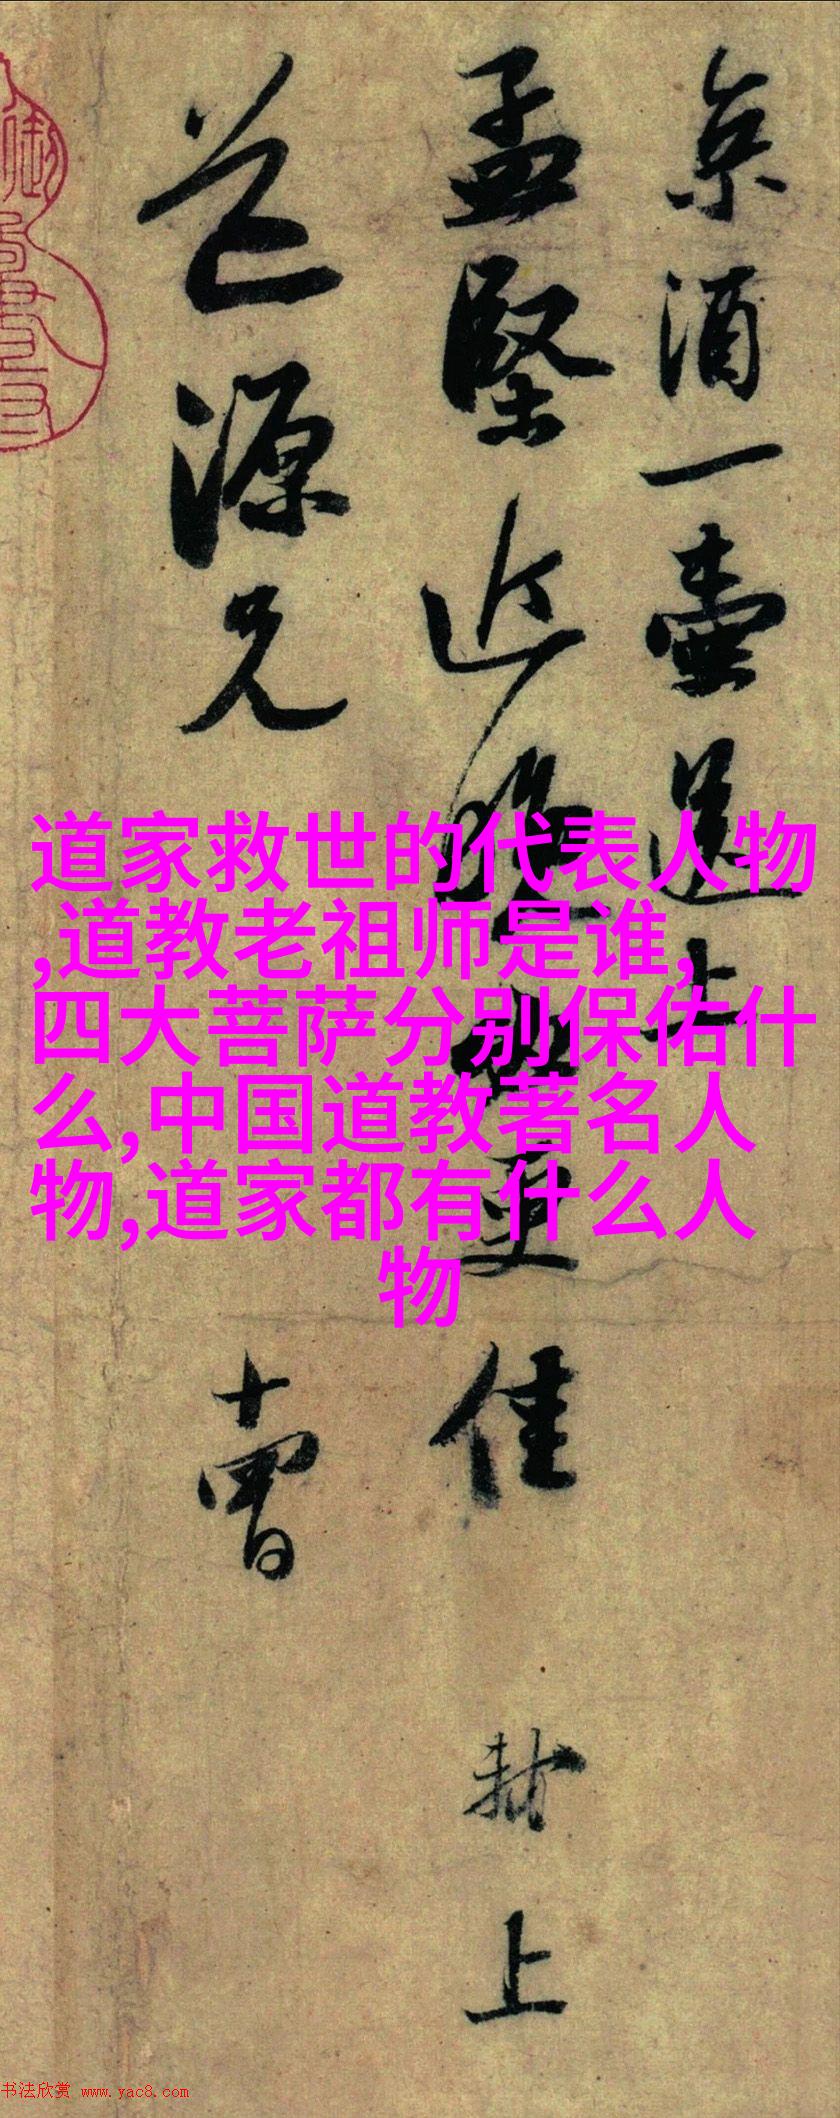 京酒一壶送上
孟坚近晚必更佳
芒源兄
十曹
轼上
道家救世的代表人物
,道教老祖师是谁,
四大菩萨分别保佑什
么,中国道教著名人
物,道家都有什么人
物
书法欣赏 www.yac8.com